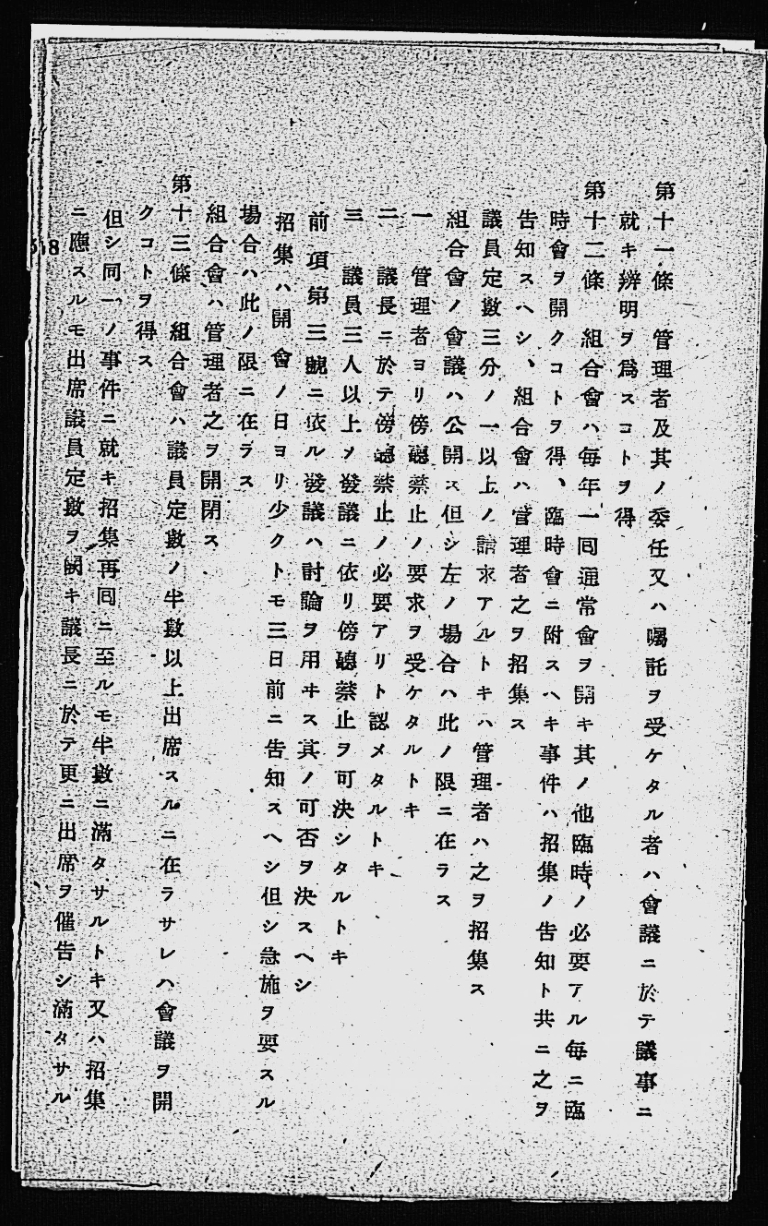 第十一條　管理者及其ノ委任又ハ囑託ヲ受ケタル者ハ會議ニ於テ議事ニ
就キ辨明ヲ爲スコトヲ得
第十二條　組合會ハ毎年一囘通常會ヲ開キ其ノ他臨時ノ必要アル毎ニ臨
時會ヲ開クコトヲ得、臨時會ニ附スヘキ事件ハ招集ノ告知ト共ニ之ヲ
告知スヘシ、組合會ハ管理者之ヲ招集ス
議員定數三分ノ一以上ノ請求アルトキハ管理者ハ之ヲ招集ス
組合會ノ會議ハ公開ス但シ左ノ場合ハ此ノ限ニ在ラス
一　管理者ヨリ傍聽禁止ノ要求ヲ受ケタルトキ
二　議長ニ於テ傍聽禁止ノ必要アリト認メタルトキ
三　議員三人以上ノ發議ニ依リ傍聽禁止ヲ可決シタルトキ
前項第三號ニ依ル發議ハ討論ヲ用ヰス其ノ可否ヲ決スヘシ
招集ハ開會ノ日ヨリ少クトモ三日前ニ告知スヘシ但シ急施ヲ要スル
場合ハ此ノ限ニ在ラス
組合會ハ管理者之ヲ開閉ス
第十三條　組合會ハ議員定數ノ半數以上出席スルニ在ラサレハ會議ヲ開
クコトヲ得ス
但シ同一ノ事件ニ就キ招集再囘ニ至ルモ半數ニ滿タサルトキ又ハ招集
ニ應スルモ出席議員定數ヲ闕キ議長ニ於テ更ニ出席ヲ催告シ滿タサル